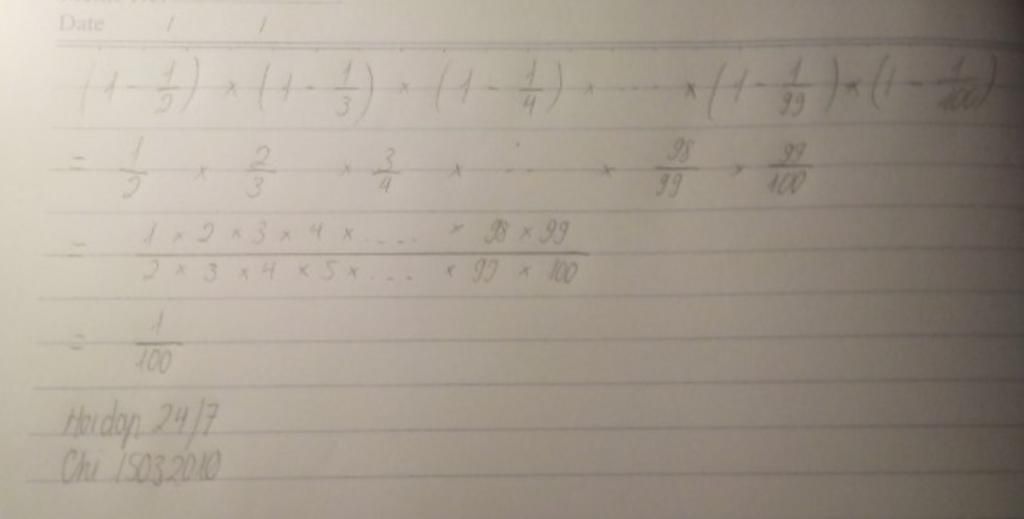 Date / /
(1 - 1/2) × (1 - 1/3) × (1 - 1/4) × .... × (1 - 1/99) × (1 - 1/100)
= 1/2 × 2/3 × 3/4 × .... × 98/99 × 99/100
= 1 × 2 × 3 × 4 × .... × 98 × 99
2 × 3 × 4 × 5 × .... × 99 × 100
= 1/100
Hoidap 24/7
Chi 15032010